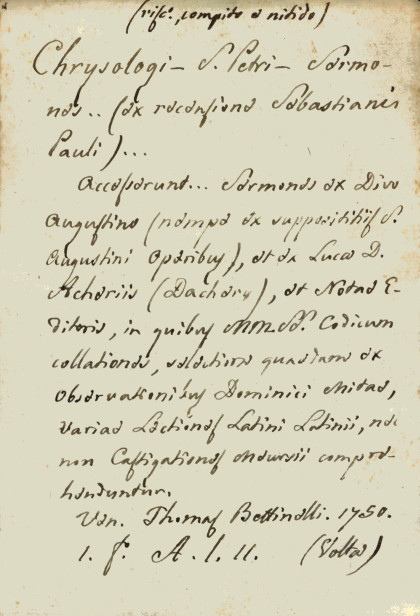 (risc., compito e nitido)
Chrysologi - S. Petri - Sermo-
nes.. (ex recensione Sebastiani
Pauli)...
Accesserunt... Sermones ex Divo
Augustino (nempe ex supposititiis S.
Augustini Operibus), et ex Luca D.
Acherii (Dachery), et Notae E-
ditoris, in quibus MM.SS. Codicum
collationes, selectiora quaedam ex
Observationibus Dominici Mitae,
variae Lectiones Latini Latinii, nec
non Castigationes Meursii compre-
henduntur.
Ven. Thomas Bettinelli. 1750.
1. f. A. l. 11. (Volta)